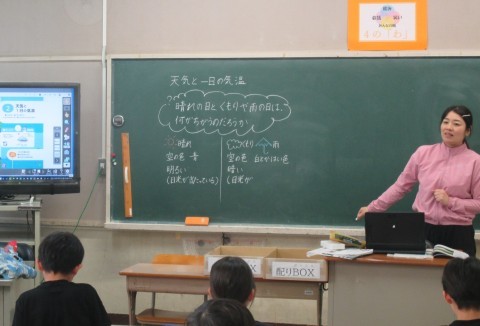 天気と一日の気温
晴れの日とくもりや雨の日は、
何がちがうのだろうか
晴れ
空の色 青
明るい
(日光が当たっている)
くもり 雨
空の色 白とかはい色
暗い
(日光が
4の「わ」
配りBOX